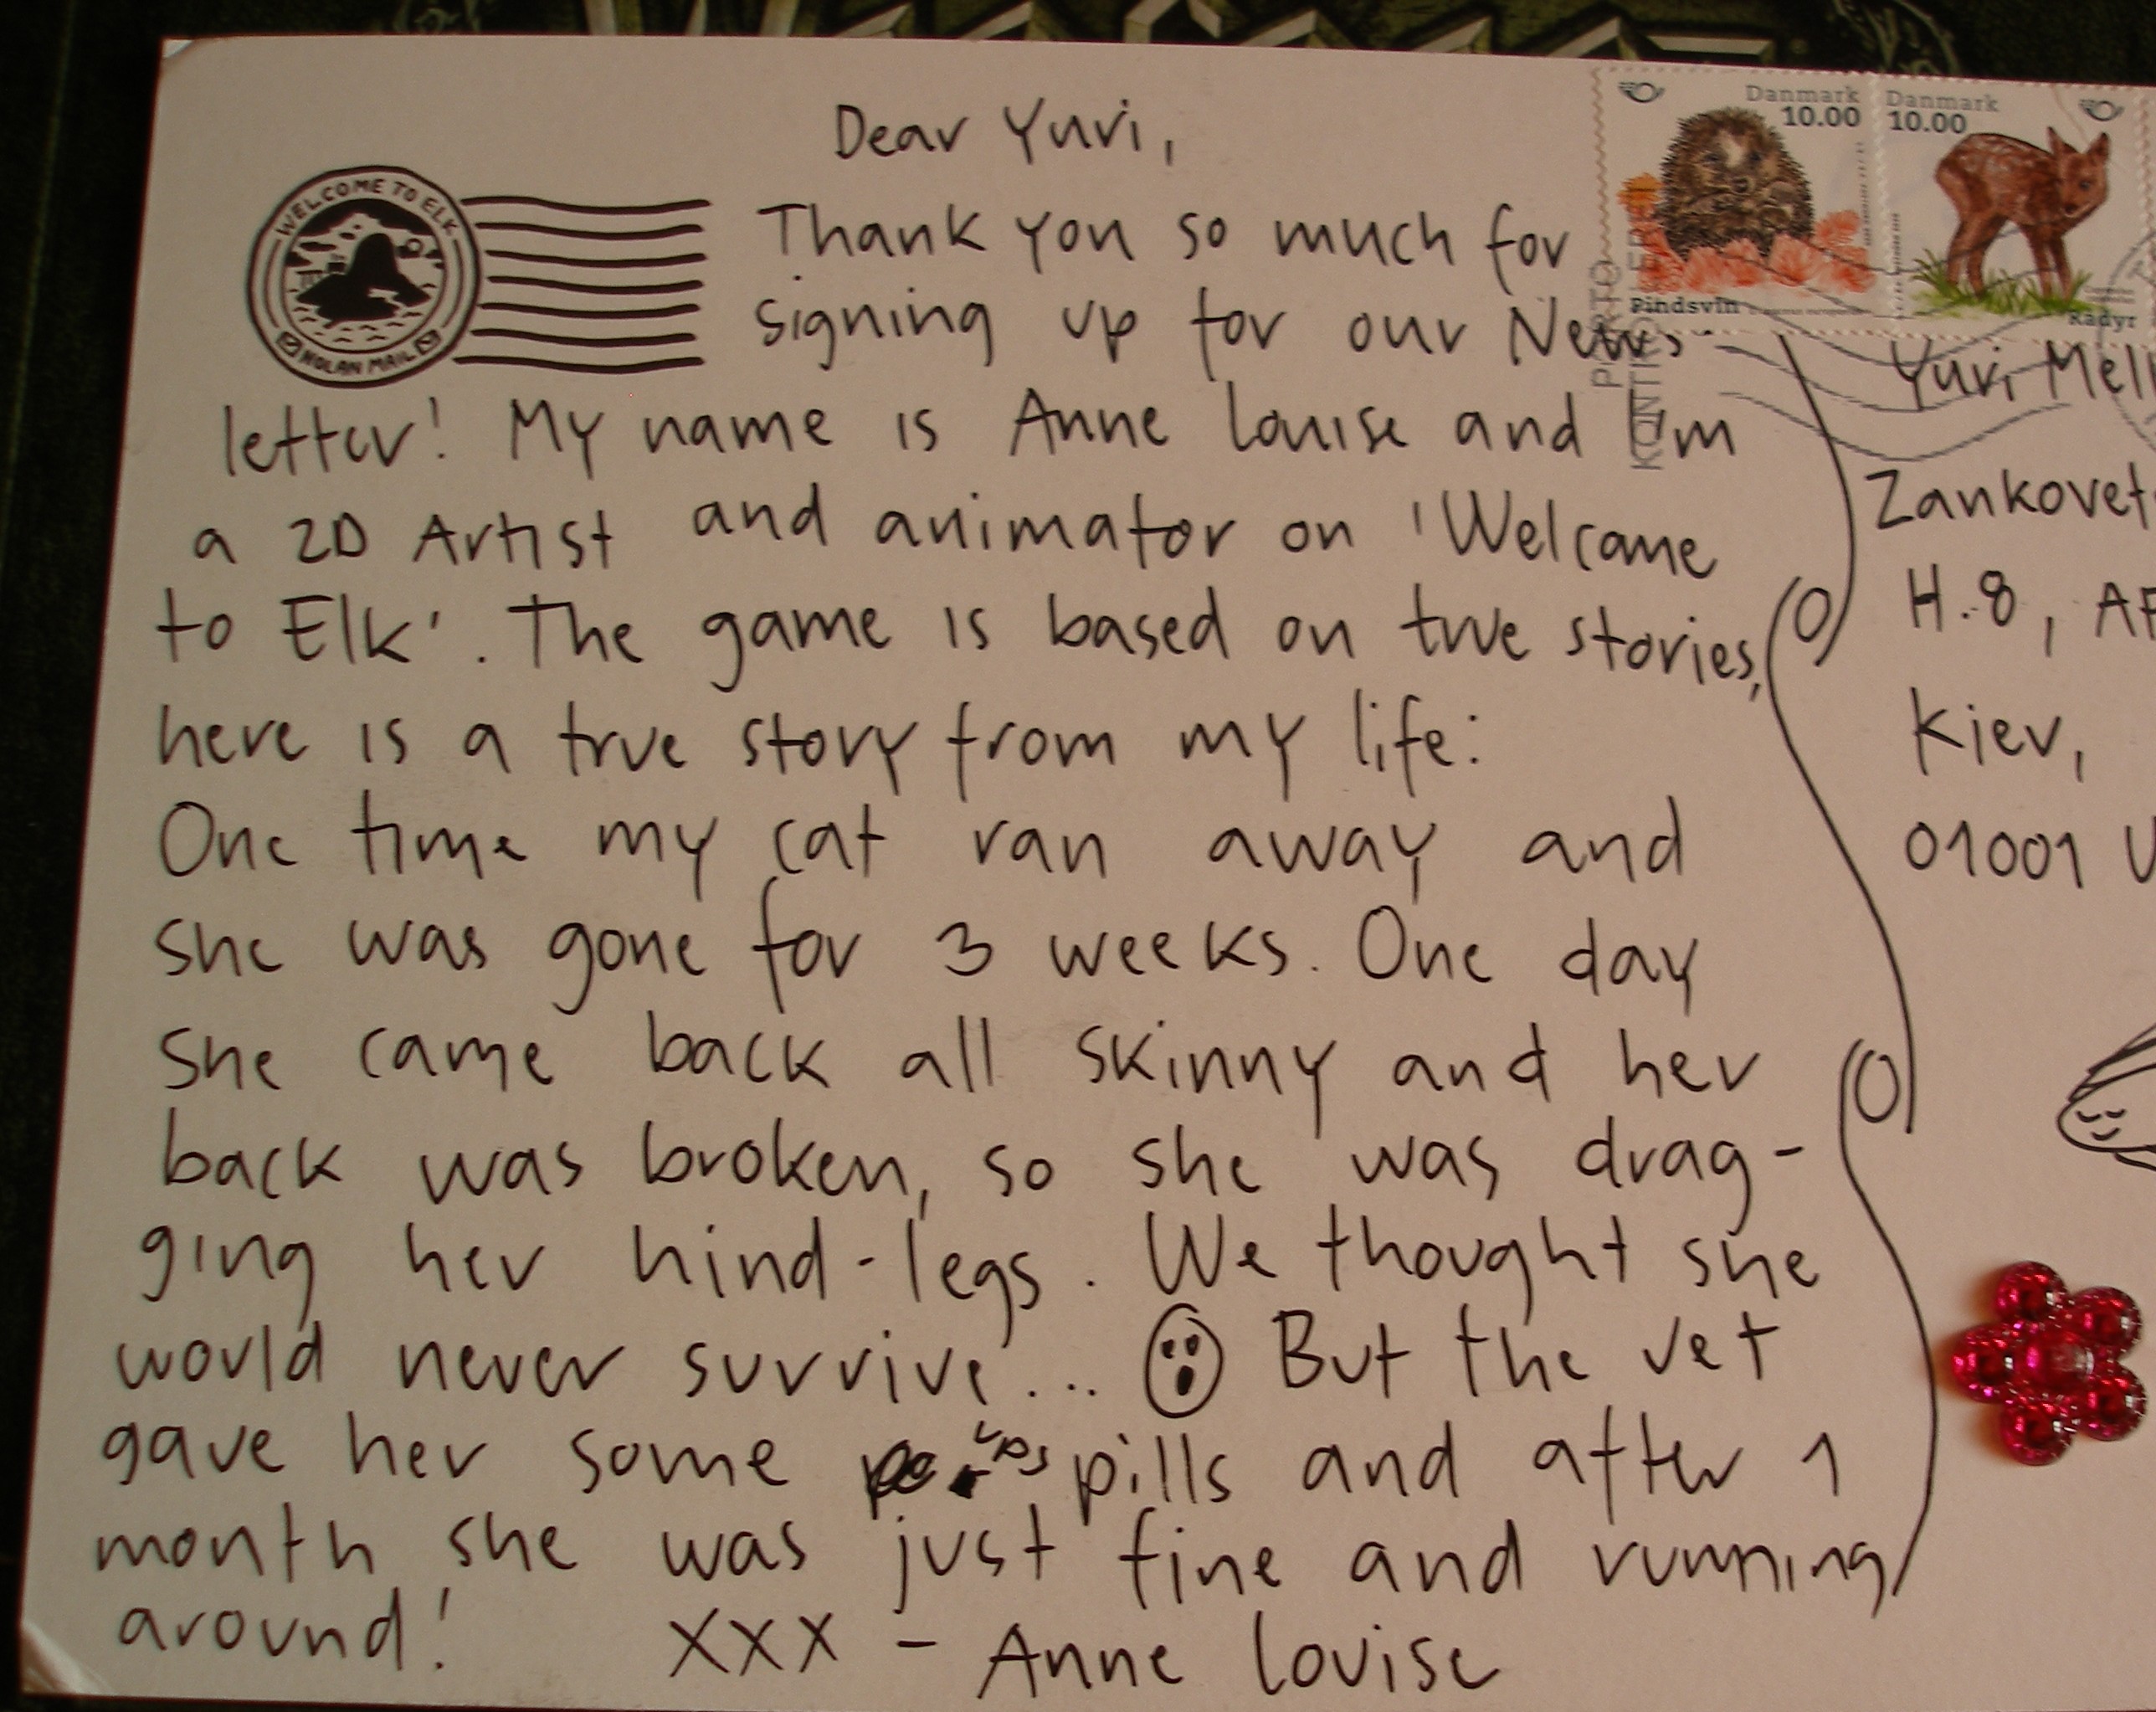 Dear Yuri,
WELCOME TO ELK
NOLAN MAIL
Thank you so much for
signing up for our News-
letter! My name is Anne Louise and I'm
a 2D Artist and animator on 'Welcome
to Elk'. The game is based on true stories,
here is a true story from my life:
One time my cat ran away and
she was gone for 3 weeks. One day
she came back all skinny and her
back was broken, so she was drag-
ging her hind-legs. We thought she
would never survive... But the vet
gave her some pills and after 1
month she was just fine and running
around! XXX - Anne Louise
Danmark
10.00
Pindsvin
Danmark
10.00
Rådyr
Yuri
H.8,
Kiev,
01001